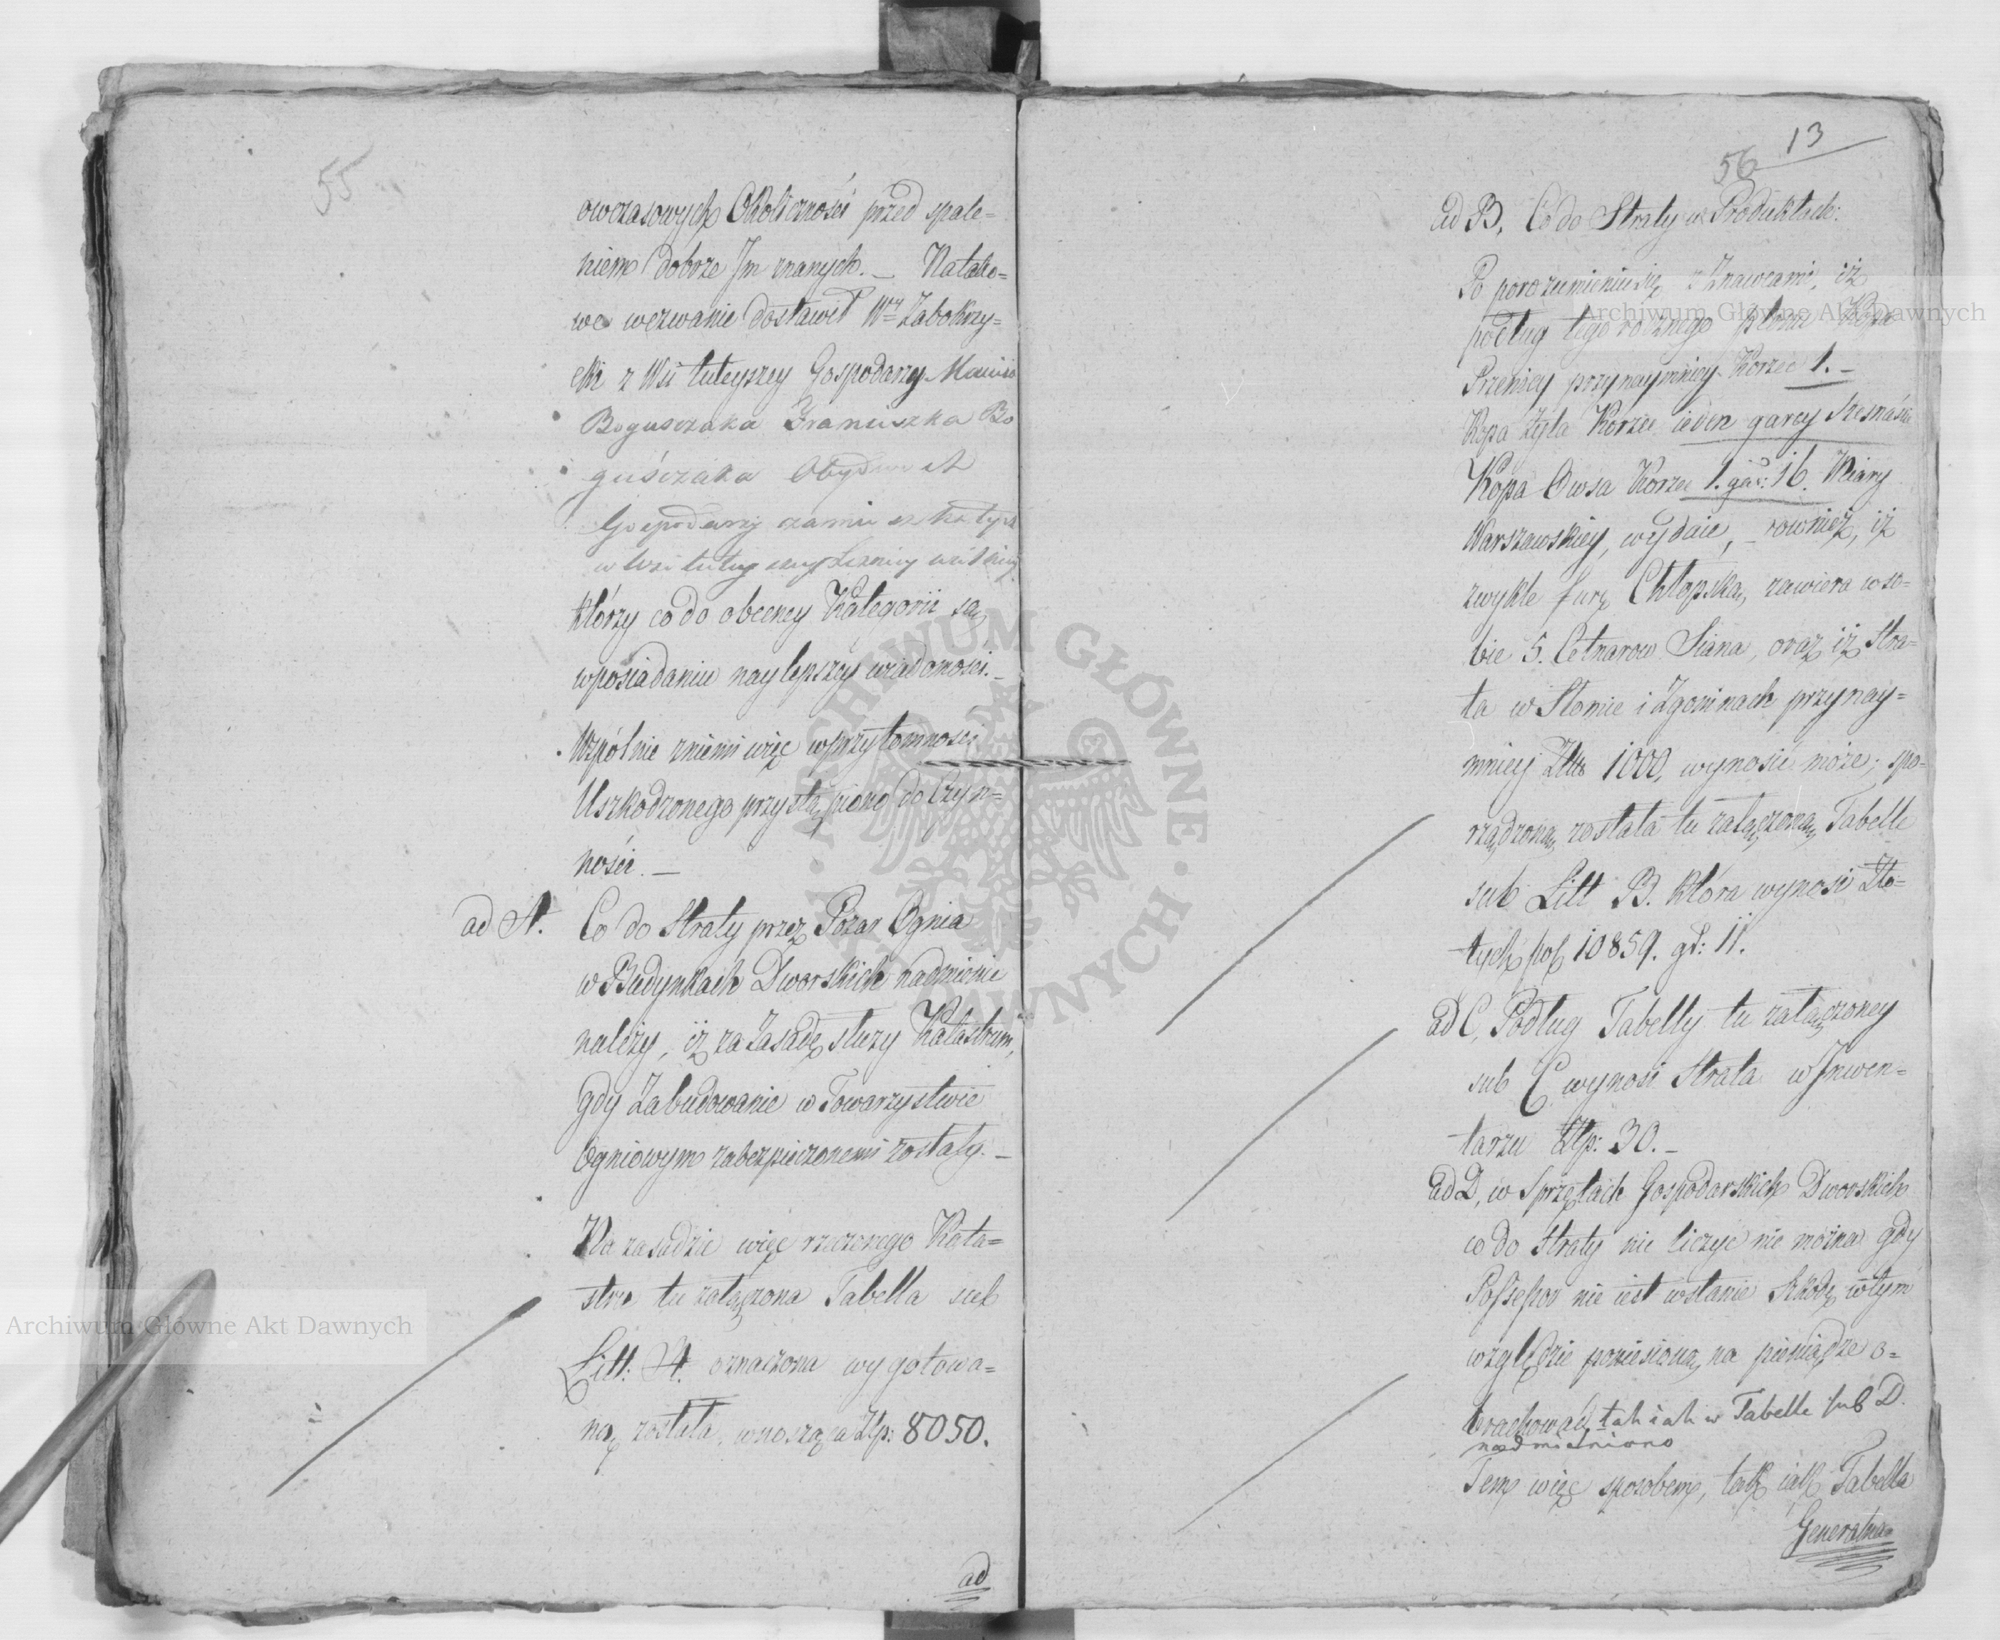 55
owczasowych Okoliczności przed spale=
niem dobrze Jm znanych. — Natako=
we wezwanie dostawił Wny Zabokrzy=
cki z Wsi tuteyszey Gospodarzy
Boguszaka Franciszka Bo
guśczaka Obydwu
Gospodarzy
w Wsi tutey
którzy co do obecney Kategorii są
wposiadaniu naylepszey wiadomości. —
Wspólnie zniemi więc wprzytomności
Uszkodzonego przystąpiono do Czyn=
ności. —
ad A. Co do Straty przez Pożar Ognia
w Budynkach Dworskich nadmienić
należy, iż za Zasadę służy Katastrum,
gdy Zabudowanie w Towarzystwie
Ogniowym zabezpieczonemi zostały. —
Na zasadzie więc rzeczonego Kata=
stru tu załączona Tabella sub
Litt: A. oznaczona wygotowa=
ną została, wnosząca Zlp: 8050.
ad
13
56
ad B, Co do Straty w Produktach:
Po porozumieniu się z Znawcami, iż
podług tegorocznego plonu Kopa
Pszenicy przynaymniey Korzec 1. —
Kopa Żyta Korzec ieden garcy szesnaście
Kopa Owsa Korzec 1. gar: 16. Miary
Warszawskiey, wydaie, — rownież, iż
zwykle fura Chłopska, zawiera wso=
bie 5. Cetnarow Siana, oraz iż Stra=
ta w Słomie i Zgoninach przynay=
mniey Złtt 1000, wynosić może, spo=
rządzoną została tu załączoną Tabelle
sub Litt B. która wynosi Zło=
tych pol 10859. gr: 11.
ad C, Podług Tabelly tu załączoney
sub C wynosi Strata w Jnwen=
tarzu Zlp: 30. —
ad D, w Sprzętach Gospodarskich Dworskich
co do Straty nic liczyć nie można gdy
Possessor nie iest wstanie Szkodę wtym
względzie poniesioną na pieniądze o=
brachować, tak iak w Tabelle sub D.
nadmieniono
Tem więc sposobem, tak iak Tabella
Generalna
Archiwum Główne Akt Dawnych
Archiwum Główne Akt Dawnych
ARCHIWUM GŁÓWNE AKT DAWNYCH